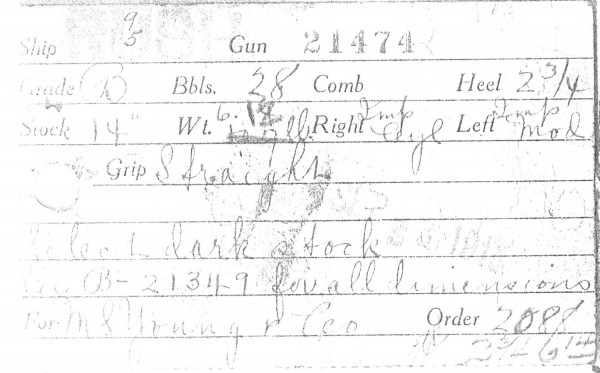 Ship 9/5 Gun 21474
Grade B Bbls. 28 Comb Heel 2 3/4
Stock 14" Wt. 6 12 lb. Right Imp Cyl Left Imp Mod
Grip Straight
Select dark stock
See B-21349 for all dimensions
For M S Young & Co Order 2088